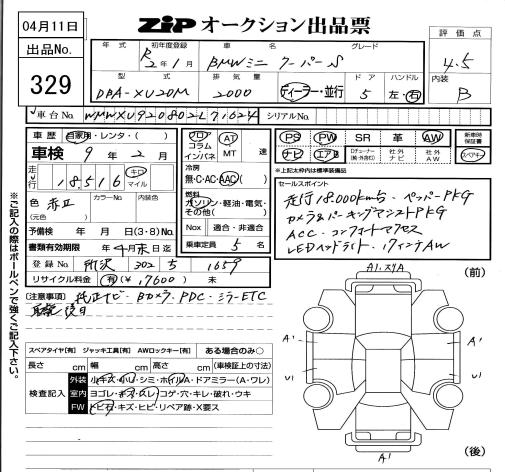 04月11日
ZIP オークション出品票
出品No.
329
評価点
4.5
内装
B
年式 初年度登録 車名 グレード
R2年1月 BMWミニ クーパーS
型式 排気量 ディーラー・並行 ドア ハンドル
DBA-XU20M 2000 5 左・右
車台No. WMWXU920802L71624 シリアルNo.
車歴 自家用・レンタ・( )
車検 9年2月
走行 18,516 キロ マイル
色 赤 カラーNo. 内装色
(元色)
予備検 年 月 日(3・8)No.
書類有効期限 年4月末日迄
登録No. 所沢 302 ち 1659
リサイクル料金 有(¥17600) 未
フロア
コラム
インパネ
AT
MT
速
冷房
無・C・AC・AAC( )
燃料
ガソリン・軽油・電気・
その他( )
Nox 適合・非適合
乗車定員 5名
PS PW SR 革 AW
ナビ エアB Dチューナー 社外ナビ 社外AW
新車時保証書
スペアキー
*上記太枠内は標準装備品
セールスポイント
走行18.000km台、ペッパーPKG
カメラ&パーキングアシストPKG
ACC コンフォートアクセス
LEDヘッドライト、17インチAW
(注意事項) 純正ナビ・Bカメラ・PDC・ミラーETC
取説 後日
スペアタイヤ[有] ジャッキ工具[有] AWロックキー[有] ある場合のみ○
長さ cm 幅 cm 高さ cm (車検証上の寸法)
検査記入
外装 小キズ・小U・シミ・ホイルA・ドアミラー(A・ワレ)
室内 ヨゴレ・キズ・スレ・コゲ・穴・キレ・破れ・ウキ
FW トビ石・キズ・ヒビ・リペア跡・X要ス
※ご記入の際はボールペンで強くご記入下さい。
A1.スリA
(前)
A' A'
U1 U1
A'
(後)